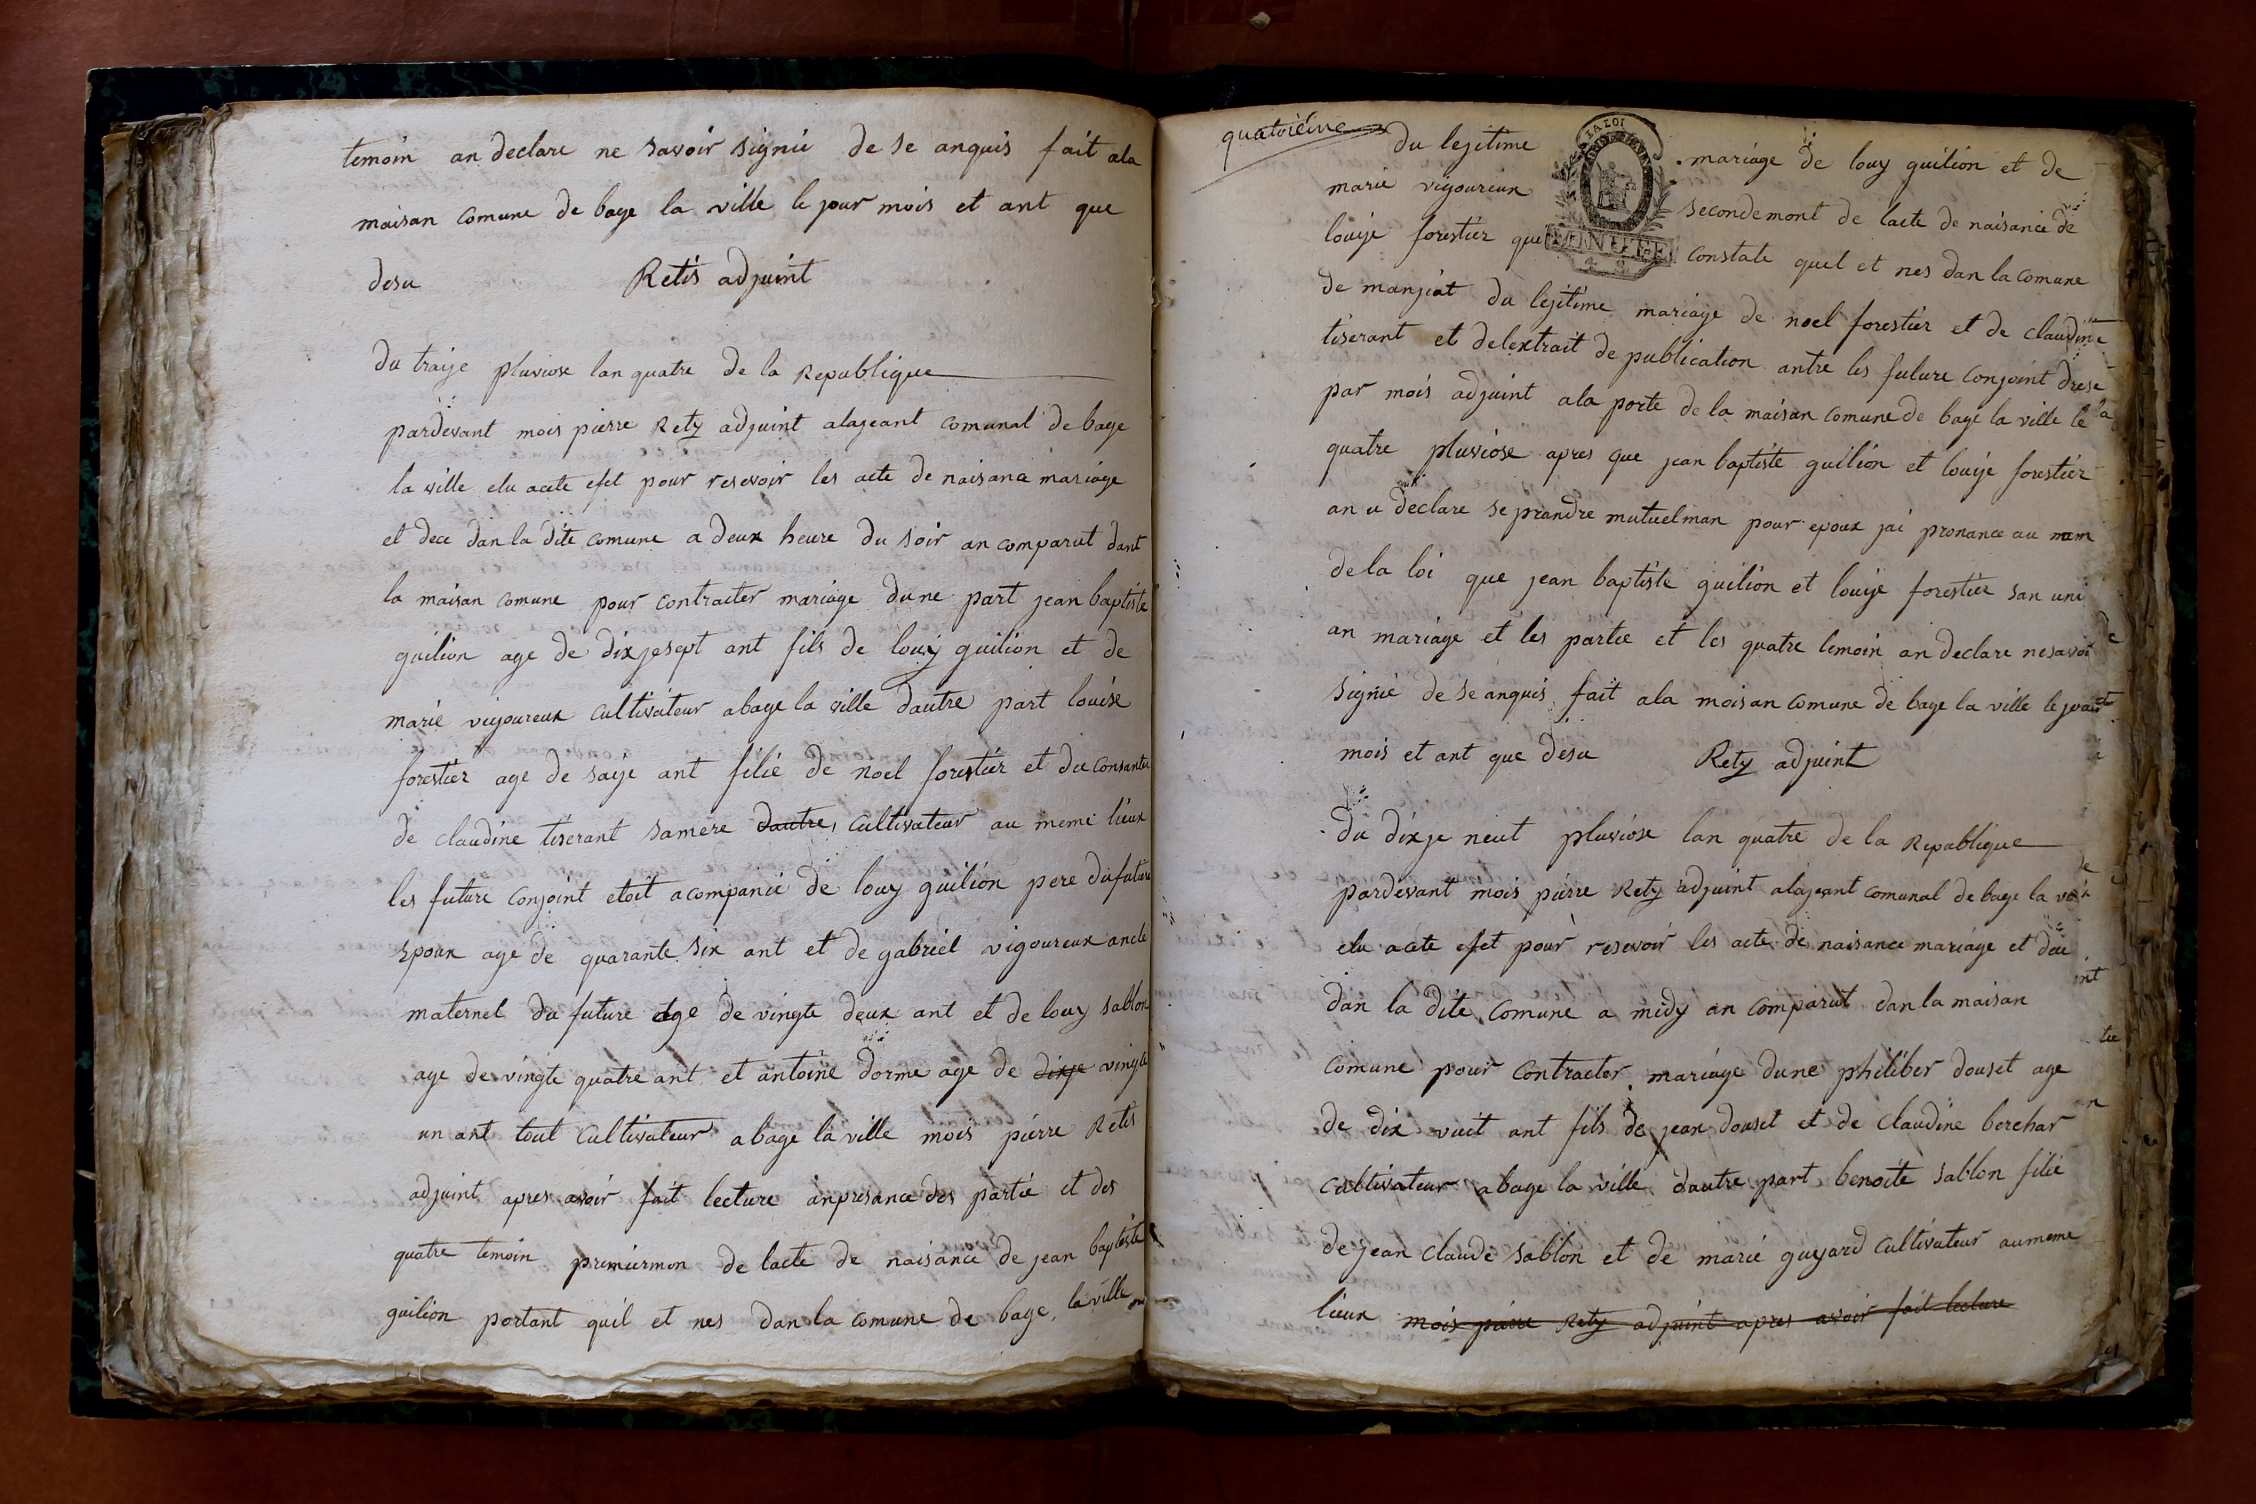 temoin an declare ne savoir signié de se anquis fait ala
maisan comune de bage la ville le jour mois et ant que
desu Retis adjuint
du traije pluviose lan quatre de la Republique
pardevant mois pierre Rety adjuint alajeant comunal de bage
la ville elu acete efet pour resevoir les acte de naisance mariage
et dece dan la dite comune a deux heure du soir an comparut dant
la maisan comune pour contracter mariage dune part jean baptiste
guilion age de dixjesept ant fils de louy guilion et de
marie vigoureux cultivateur abage la ville dautre part louise
forestier age de saije ant filie de noel forestier et du consantu
de claudine tiserant samere dautre, cultivateur au meme lieux
les future conjoint etoit acompanié de louy guilion pere du future
epoux age de quarante six ant et de gabriel vigoureux ancle
maternel du future age de vingte deux ant et de louy sablon
age de vingte quatre ant et antoine dorme age de dixje vingte
un ant tout cultivateur abage la ville mois pierre Retis
adjuint apres avoir fait lecture anpresance des partie et des
quatre temoin premiermon de lacte de naisance de jean baptiste
guilion portant quil et nes dan la comune de bage la ville
quatrieme du lejitime mariage de louy guilion et de
marie vigoureux secondemont de lacte de naisance de
louije forestier que constate quel et nes dan la comune
de manjiat du lejitime mariage de noel forestier et de claudine
tiserant et delextrait de publication antre les future conjoint drese
par mois adjuint ala porte de la maisan comune de bage la ville le
quatre pluviose apres que jean baptiste guilion et louije forestier
an u declare se prandre mutuelman pour epoux jai pronance au nom
de la loi que jean baptiste guilion et louije forestier san uni
an mariage et les partie et les quatre temoin an declare nesavoir
signié de se anquis fait ala moisan comune de bage la ville le jour
mois et ant que desu Rety adjuint
du dixje neut pluviose lan quatre de la Republique
pardevant mois pierre Rety adjuint alajeant comunal de bage la
elu acete efet pour resevoir les acte de naisance mariage et dece
dan la dite comune a midy an comparut dan la maisan
comune pour contracter mariage dune philiber douset age
de dix vuit ant fils de jean douset et de claudine berchar
cultivateur abage la ville dautre part benoite sablon filie
de jean claude sablon et de marie guyard cultivateur aumeme
lieux mois pierre Rety adjuint apres avoir fait lecture
LA LOI